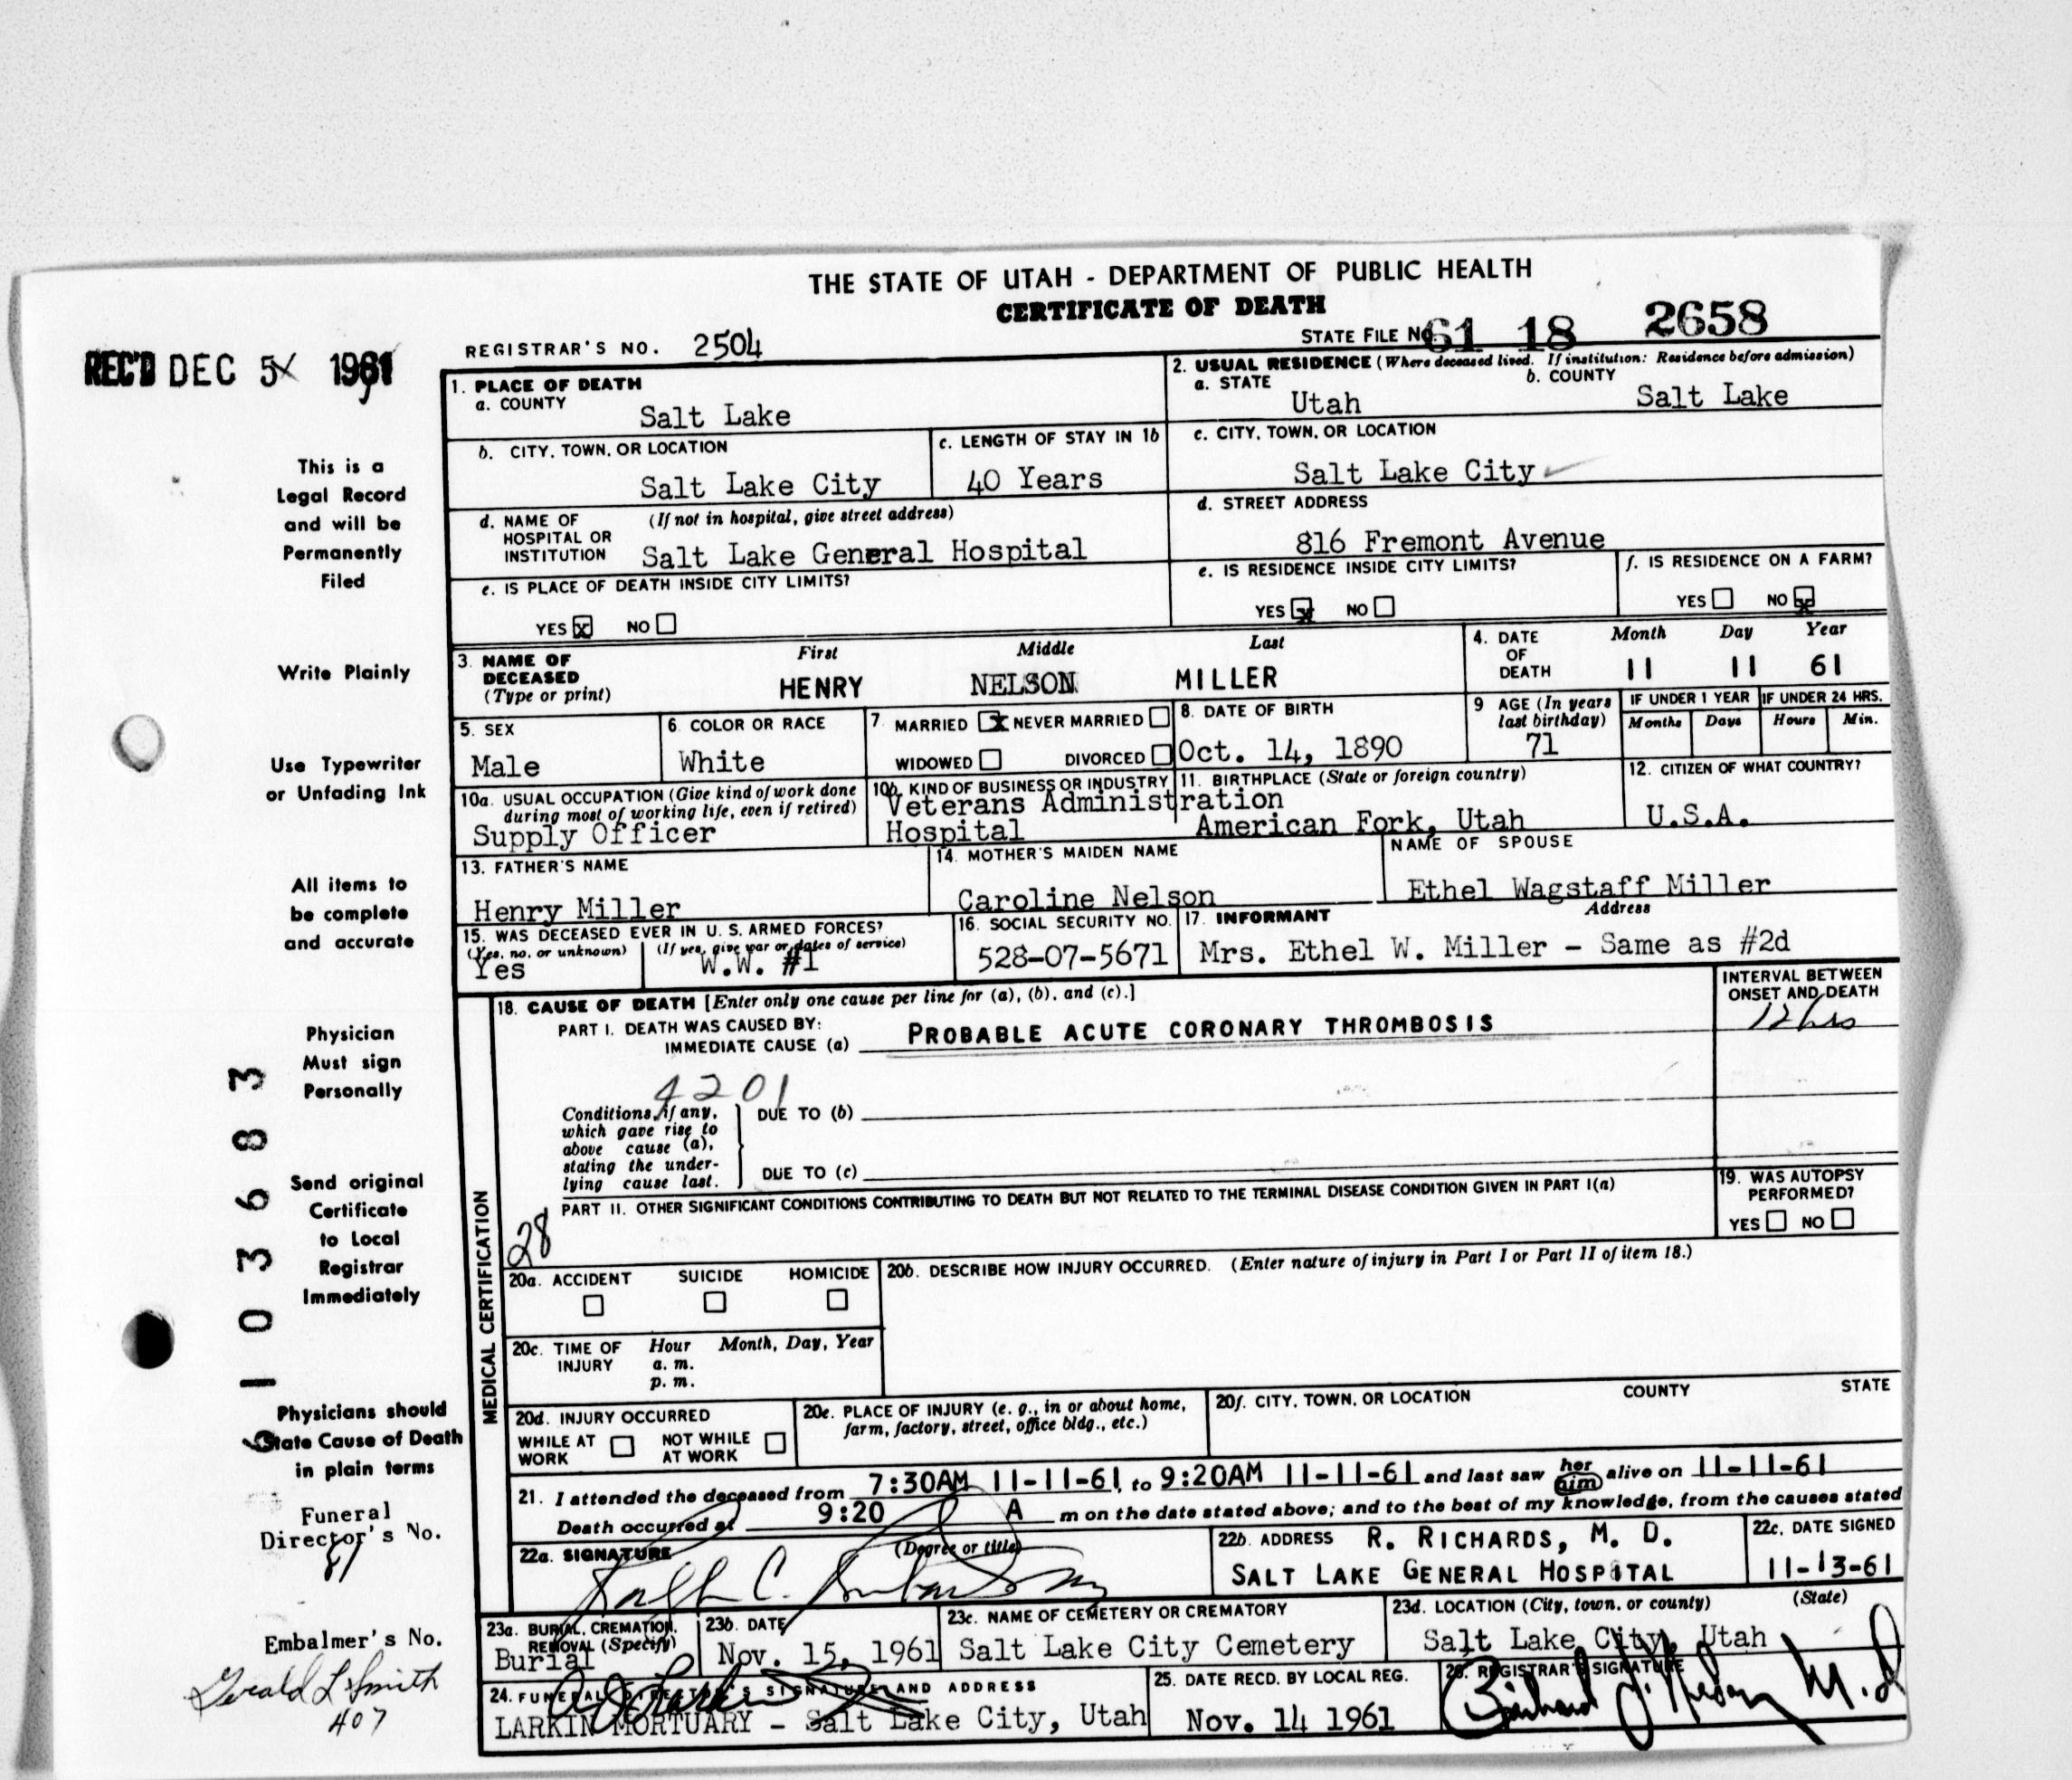 THE STATE OF UTAH - DEPARTMENT OF PUBLIC HEALTH
CERTIFICATE OF DEATH
STATE FILE NO. 61 18 2658
REGISTRAR'S NO. 2504
REC'D DEC 5 1961
This is a
Legal Record
and will be
Permanently
Filed
Write Plainly
Use Typewriter
or Unfading Ink
All items to
be complete
and accurate
Physician
Must sign
Personally
Send original
Certificate
to Local
Registrar
Immediately
1103683
Physicians should
State Cause of Death
in plain terms
Funeral
Director's No.
81
Embalmer's No.
Gerald L Smith
407
1. PLACE OF DEATH
a. COUNTY
Salt Lake
b. CITY, TOWN, OR LOCATION
Salt Lake City
c. LENGTH OF STAY IN 1b
40 Years
d. NAME OF HOSPITAL OR INSTITUTION
(If not in hospital, give street address)
Salt Lake General Hospital
e. IS PLACE OF DEATH INSIDE CITY LIMITS?
YES x NO
2. USUAL RESIDENCE (Where deceased lived. If institution: Residence before admission)
a. STATE
Utah
b. COUNTY
Salt Lake
c. CITY, TOWN, OR LOCATION
Salt Lake City
d. STREET ADDRESS
816 Fremont Avenue
e. IS RESIDENCE INSIDE CITY LIMITS?
YES x NO
f. IS RESIDENCE ON A FARM?
YES NO x
3. NAME OF DECEASED (Type or print)
First Middle Last
HENRY NELSON MILLER
4. DATE OF DEATH
Month Day Year
11 11 61
5. SEX
Male
6. COLOR OR RACE
White
7. MARRIED x NEVER MARRIED
WIDOWED DIVORCED
8. DATE OF BIRTH
Oct. 14, 1890
9 AGE (In years last birthday)
71
IF UNDER 1 YEAR
Months Days
IF UNDER 24 HRS.
Hours Min.
10a. USUAL OCCUPATION (Give kind of work done during most of working life, even if retired)
Supply Officer
10b. KIND OF BUSINESS OR INDUSTRY
Veterans Administration
Hospital
11. BIRTHPLACE (State or foreign country)
American Fork, Utah
12. CITIZEN OF WHAT COUNTRY?
U.S.A.
13. FATHER'S NAME
Henry Miller
14. MOTHER'S MAIDEN NAME
Caroline Nelson
NAME OF SPOUSE
Ethel Wagstaff Miller
15. WAS DECEASED EVER IN U. S. ARMED FORCES?
(Yes, no, or unknown) (If yes, give war or dates of service)
Yes W.W. #1
16. SOCIAL SECURITY NO.
528-07-5671
17. INFORMANT Address
Mrs. Ethel W. Miller - Same as #2d
MEDICAL CERTIFICATION
18. CAUSE OF DEATH [Enter only one cause per line for (a), (b), and (c).]
PART I. DEATH WAS CAUSED BY:
IMMEDIATE CAUSE (a) PROBABLE ACUTE CORONARY THROMBOSIS
INTERVAL BETWEEN ONSET AND DEATH
12 hrs
4201
Conditions, if any, which gave rise to above cause (a), stating the underlying cause last.
DUE TO (b)
DUE TO (c)
PART II. OTHER SIGNIFICANT CONDITIONS CONTRIBUTING TO DEATH BUT NOT RELATED TO THE TERMINAL DISEASE CONDITION GIVEN IN PART I(a)
28
19. WAS AUTOPSY PERFORMED?
YES NO
20a. ACCIDENT SUICIDE HOMICIDE
20b. DESCRIBE HOW INJURY OCCURRED. (Enter nature of injury in Part I or Part II of item 18.)
20c. TIME OF INJURY
Hour Month, Day, Year
a. m.
p. m.
20d. INJURY OCCURRED
WHILE AT WORK NOT WHILE AT WORK
20e. PLACE OF INJURY (e. g., in or about home, farm, factory, street, office bldg., etc.)
20f. CITY, TOWN, OR LOCATION COUNTY STATE
21. I attended the deceased from 7:30AM 11-11-61, to 9:20AM 11-11-61 and last saw her him alive on 11-11-61
Death occurred at 9:20 A m on the date stated above; and to the best of my knowledge, from the causes stated
22a. SIGNATURE (Degree or title)
Ralph C. Richards MD
22b. ADDRESS R. RICHARDS, M. D.
SALT LAKE GENERAL HOSPITAL
22c. DATE SIGNED
11-13-61
23a. BURIAL, CREMATION, REMOVAL (Specify)
Burial
23b. DATE
Nov. 15, 1961
23c. NAME OF CEMETERY OR CREMATORY
Salt Lake City Cemetery
23d. LOCATION (City, town, or county) (State)
Salt Lake City, Utah
24. FUNERAL DIRECTOR'S SIGNATURE AND ADDRESS
LARKIN MORTUARY - Salt Lake City, Utah
25. DATE RECD. BY LOCAL REG.
Nov. 14 1961
26. REGISTRAR'S SIGNATURE